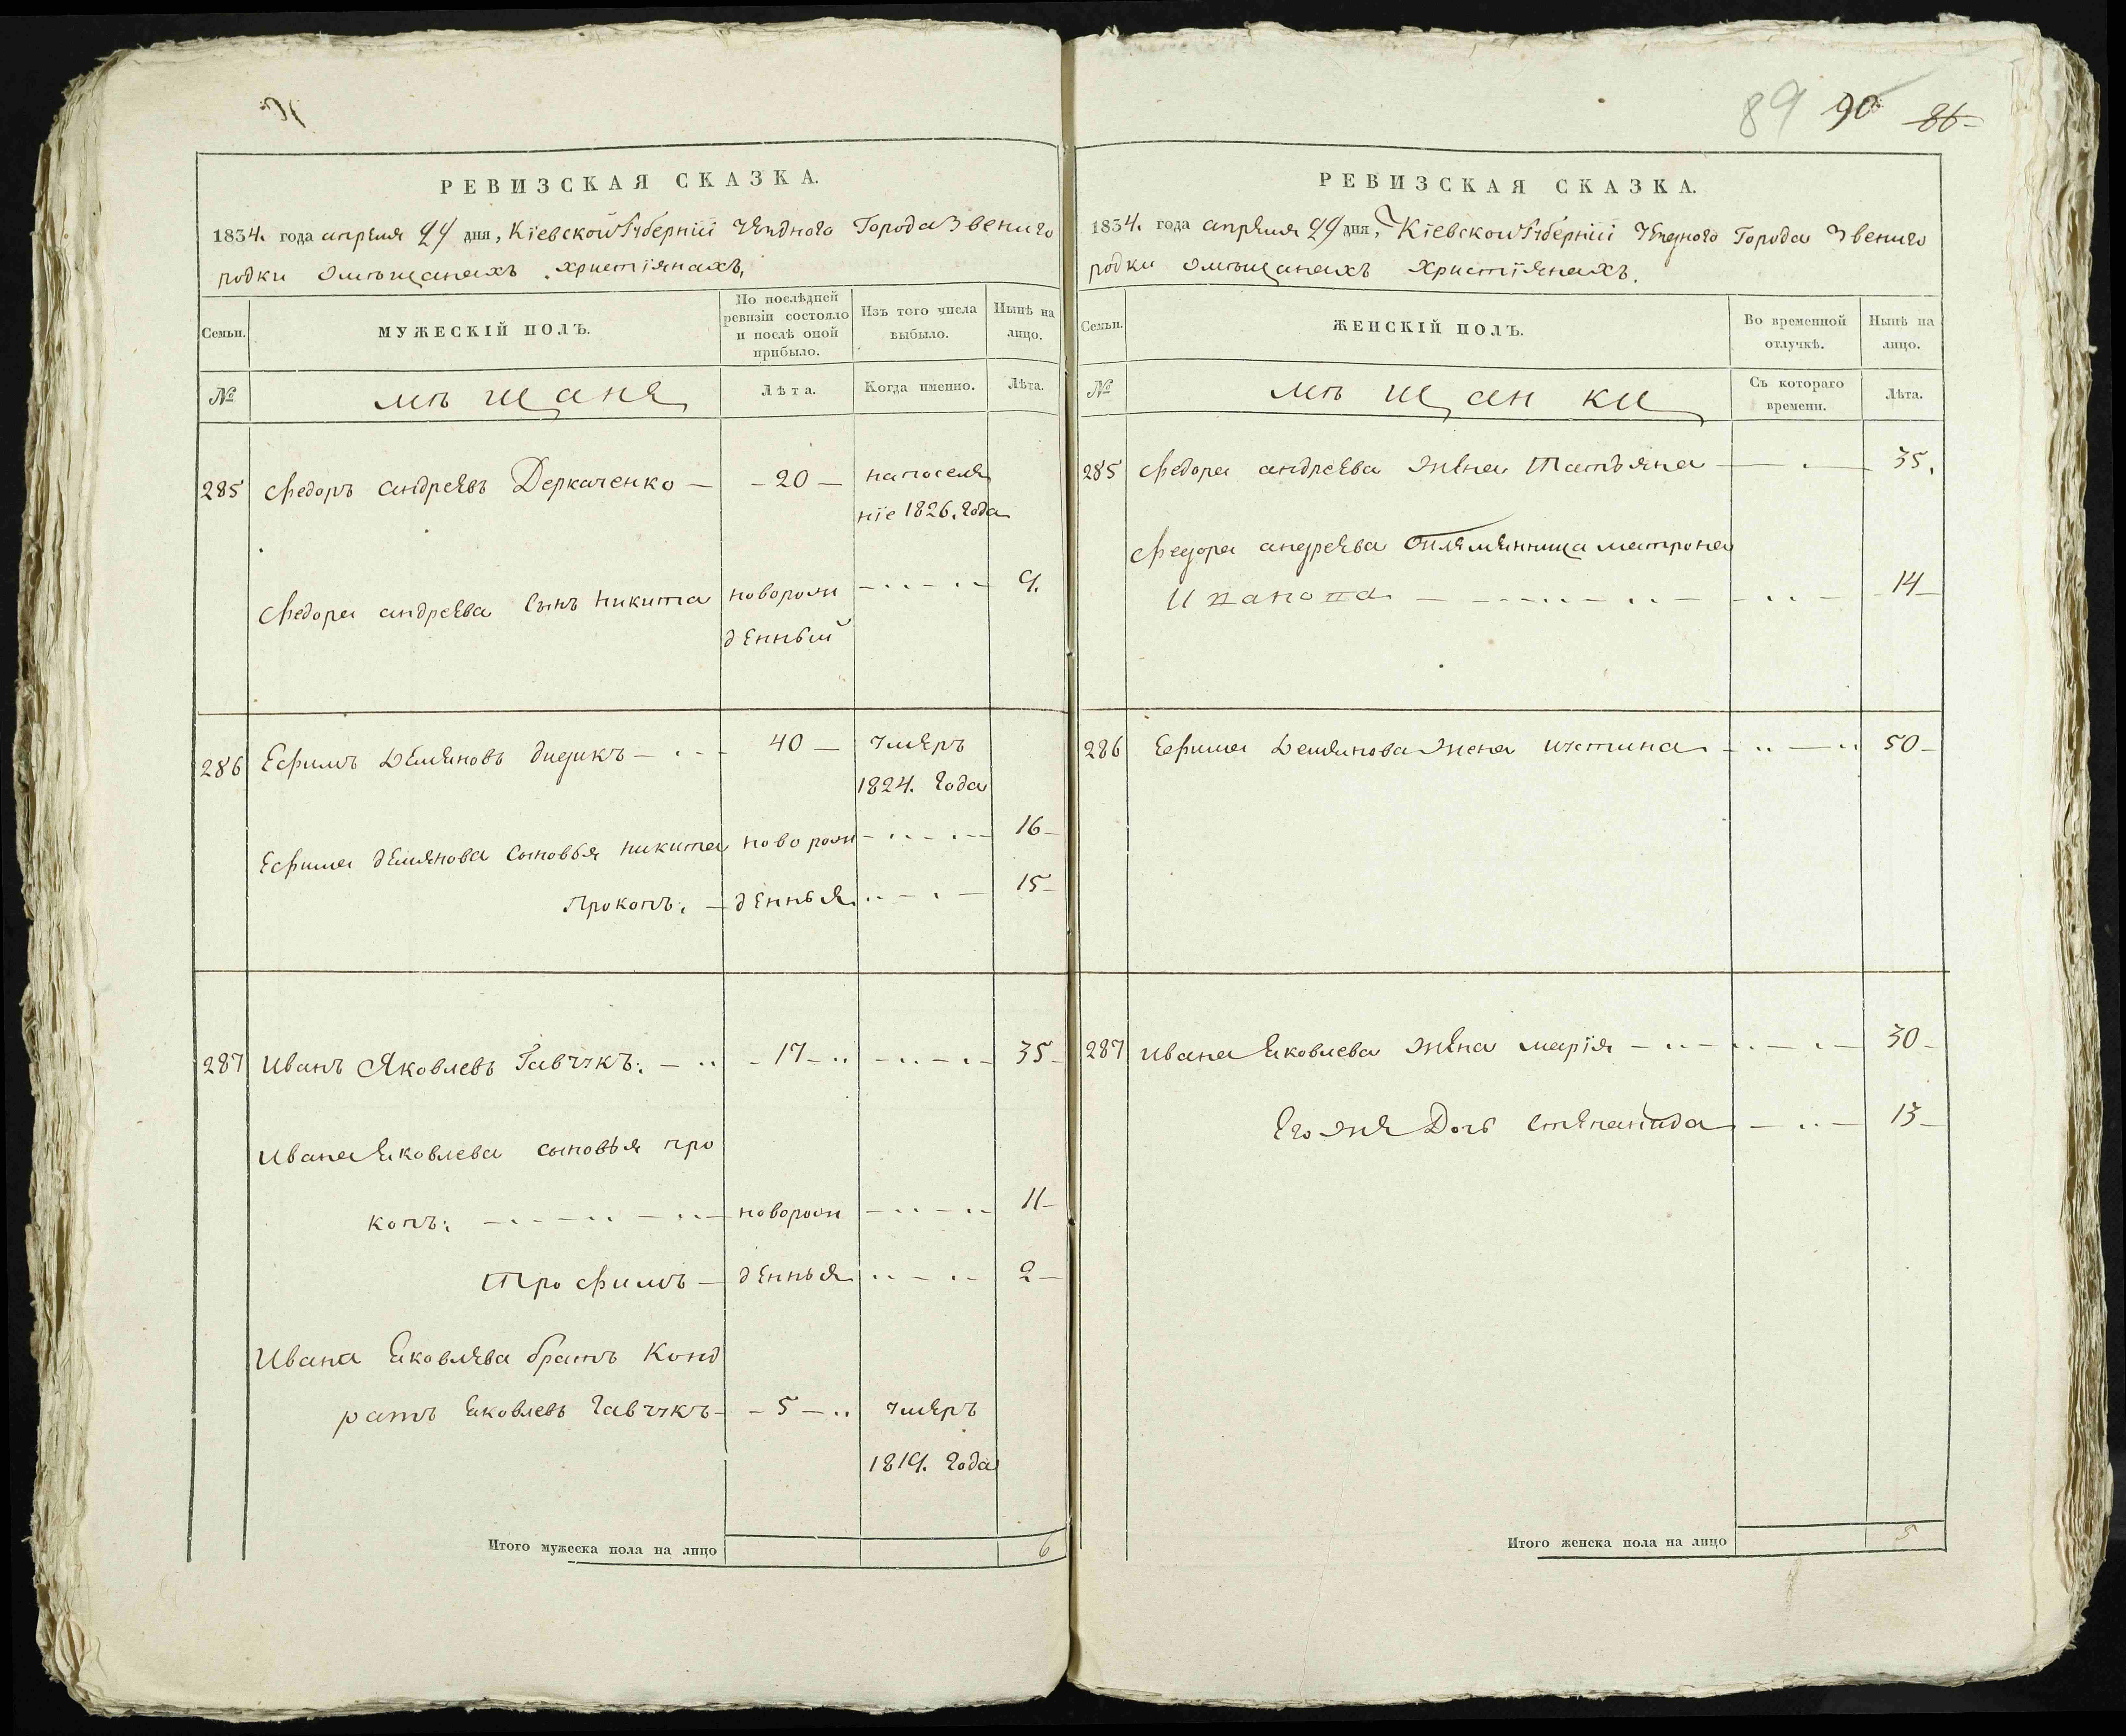 РЕВИЗСКАЯ СКАЗКА.
1834. года апреля 24 дня, Кіевской Губерніи Уездного Города Звениго
родки Омѣщанахъ Христіянахъ,
Семьи.
МУЖЕСКІЙ ПОЛЪ.
По послѣдней
ревизіи состояло
и послѣ оной
прибыло.
Изъ того числа
выбыло.
Нынѣ на
лицо.
№
мѣщане
Лѣта.
Когда именно.
Лѣта.
285 Федоръ андреевъ Деркаченко — — 20 — на поселе
ніе 1826. года
Федора андреева сынъ Никита новорож 9.
денный
286 Ефимъ Демяновъ дидикъ — 40 — умеръ
1824. года
Ефима демянова сыновья никита новорож 16—
Прокопъ: — денныя 15—
287 Иванъ Яковлевъ Гавчукъ: — 17 — 35—
Ивана Яковлева сыновья про
копъ: новорож 11—
Трофимъ — денныя 2—
Ивана Яковлева братъ Конд
ратъ Яковлевъ Гавчукъ — 5 — умеръ
1819. года
Итого мужеска пола на лицо 6
89 90 86
РЕВИЗСКАЯ СКАЗКА.
1834. года апреля 24 дня, Кіевской Губерніи Уездного Города Звениго
родки Омѣщанахъ Христіянахъ.
Семьи.
ЖЕНСКІЙ ПОЛЪ.
Во временной
отлучкѣ.
Нынѣ на
лицо.
№
мѣщанки
Съ котораго
времени.
Лѣта.
285 Федора андреева жена Татьяна 35.
Федора андреева племянница матрона
Иванова 14—
286 Ефима Демянова жена иустина 50—
287 Ивана Яковлева жена марія 30—
Его же Дочь степанида 13—
Итого женска пола на лицо 5